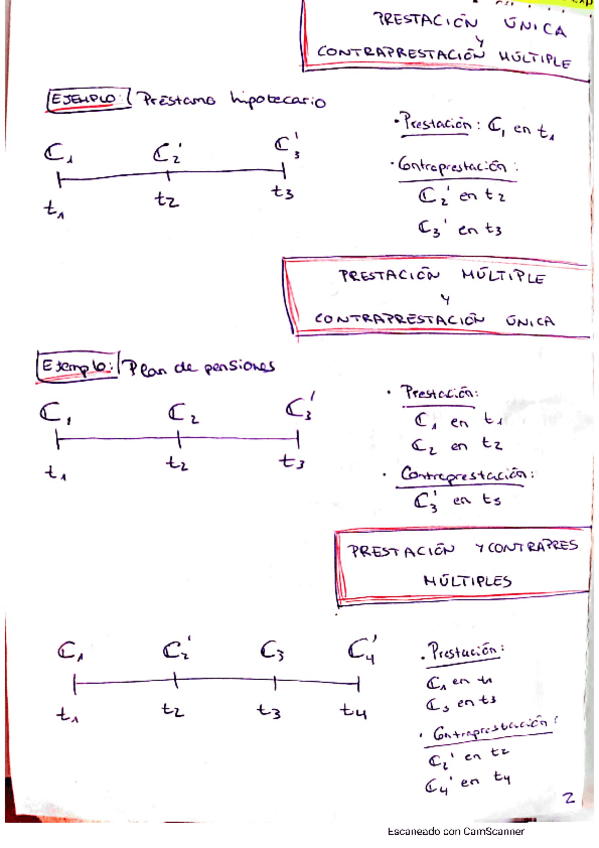 PRESTACIÓN ÚNICA
Y
CONTRAPRESTACIÓN MÚLTIPLE
EJEMPLO: Préstamo hipotecario
C₁ C₂' C₃'
t₁ t₂ t₃
· Prestación: C₁ en t₁
· Contraprestación:
C₂' en t₂
C₃' en t₃
PRESTACIÓN MÚLTIPLE
Y
CONTRAPRESTACIÓN ÚNICA
Ejemplo: Plan de pensiones
C₁ C₂ C₃'
t₁ t₂ t₃
· Prestación:
C₁ en t₁
C₂ en t₂
· Contraprestación:
C₃' en t₃
PRESTACIÓN Y CONTRAPRES
MÚLTIPLES
C₁ C₂' C₃ C₄'
t₁ t₂ t₃ t₄
· Prestación:
C₁ en t₁
C₃ en t₃
· Contraprestación:
C₂' en t₂
C₄' en t₄
2
Escaneado con CamScanner